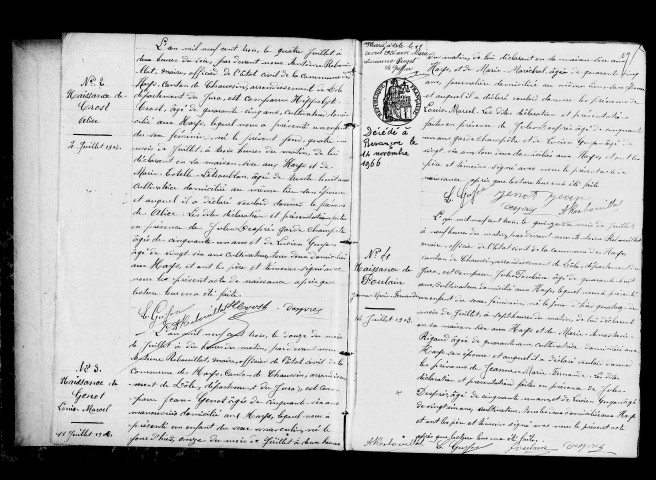 N° 2
Naissance de
Crost
Alice
2 Juillet 1903.
L'an mil neuf cent trois, le quatre Juillet à
deux heures du soir, par devant nous Antoine Rebouil-
lat, maire, officier de l'état civil de la commune de
Hays, Canton de Chaussin, arrondissement de Dôle
département du Jura, est comparu Hippolyte
Crost, âgé de quarante cinq ans, cultivateur, domi-
cilié aux Hays, lequel nous a présenté un enfant
du sexe féminin, né le présent
mois de Juillet, à trois heures du matin, de lui
déclarant en sa maison sise aux Hays et de
Marie âgée de trente huit ans
cultivatrice domiciliée au même lieu son épouse
et auquel il a déclaré vouloir donner le prénom
de Alice. Les dites déclaration et présentation faites
en présence de Jules Després garde champêtre
âgé de cinquante un ans et de Lucien Guyon
âgé de vingt six ans cultivateur, tous deux domiciliés
aux Hays, et ont les père et témoins signé avec
nous le présent acte de naissance après que
lecture leur en a été faite.
L. Guyon A Rebouillat H Crost Després
N° 3.
Naissance de
Genot
Louis Marcel
11 Juillet 1903.
L'an mil neuf cent trois, le douze du mois
de Juillet à dix heures du matin, par devant nous
Antoine Rebouillat, maire, officier de l'état civil de la
Commune de Hays, Canton de Chaussin, arrondisse-
ment de Dôle, département du Jura, est com-
paru Jean Genot âgé de cinquante six ans
domicilié aux Hays, lequel nous a
présenté un enfant du sexe masculin, né le
onze du mois de Juillet à deux heures
Marié à Dole le 17
avril 1926 avec Marie
Suzanne
Décédé à
Besançon le
14 novembre
1966
du matin, de lui déclarant en sa maison sise aux
Hays, et de Marie Maréchal âgée de quarante cinq
ans, journalière domiciliée au même lieu son épouse
et auquel il a déclaré vouloir donner les prénoms de
Louis Marcel. Les dites déclaration et présentation
faites en présence de Jules Després âgé de cinquante
un ans garde champêtre et de Lucien Guyon âgé de
vingt six ans tous deux domiciliés aux Hays et ont les
père et témoins signé avec nous le présent acte de
naissance après que lecture leur en a été faite
L. Guyon Genot Jean
Després A Rebouillat
N° 4
Naissance de
Poulain
Jeanne Marie Fernande
14 Juillet 1903.
L'an mil neuf cent trois, le quinze du mois de Juillet
à neuf heures du matin, par devant nous Antoine Rebouillat
maire, officier de l'état civil de la commune de Hays,
canton de Chaussin, arrondissement de Dôle, département du
Jura, est comparu Jules Poulain âgé de quarante huit
ans, cultivateur domicilié aux Hays, lequel nous a présenté
un enfant du sexe féminin, né le quatorze du
mois de Juillet à sept heures du matin, de lui déclarant
en sa maison sise aux Hays et de Marie
Rigaud âgée de quarante ans, cultivatrice domiciliée aux
Hays son épouse et auquel il a déclaré vouloir donner
les prénoms de Jeanne Marie Fernande. Les dites
déclaration et présentation faites en présence de Jules
Després, âgé de cinquante un ans, et de Lucien Guyon âgé
de vingt six ans, cultivateur, tous deux domiciliés aux Hays
et ont les père et témoins signé avec nous le présent acte
après que lecture leur en a été faite.
A Rebouillat L. Guyon Poulain Després